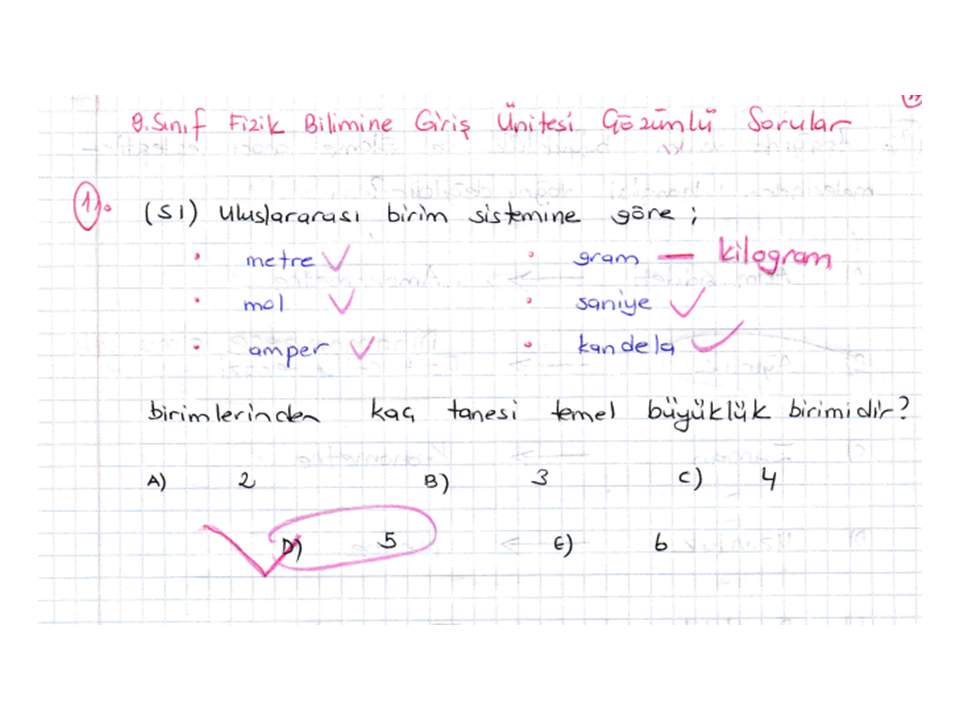 9. Sınıf Fizik Bilimine Giriş Ünitesi Çözümlü Sorular
1). (SI) Uluslararası birim sistemine göre;
• metre ✓ • gram — kilogram
• mol ✓ • saniye ✓
• amper ✓ • kandela ✓
birimlerinden kaç tanesi temel büyüklük birimidir?
A) 2 B) 3 C) 4
D) 5 E) 6